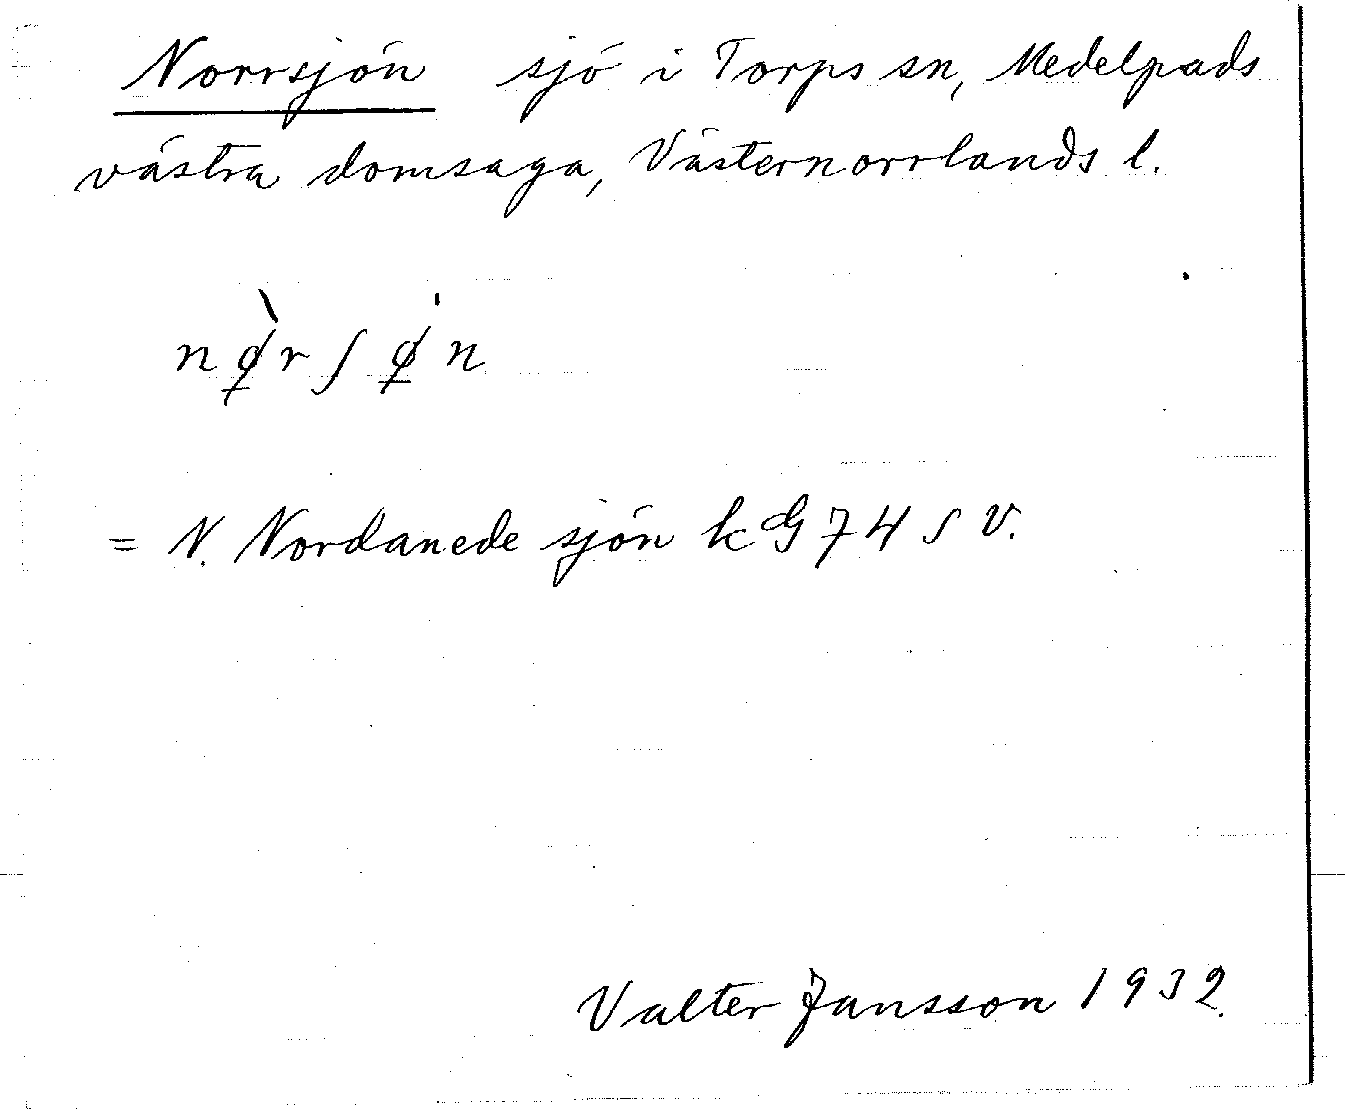 Norrsjön sjö i Torps sn, Medelpads
västra domsaga, Västernorrlands l.
nø̀rʃøn
= N. Nordanede sjön kG74SV.
Valter Jansson 1932